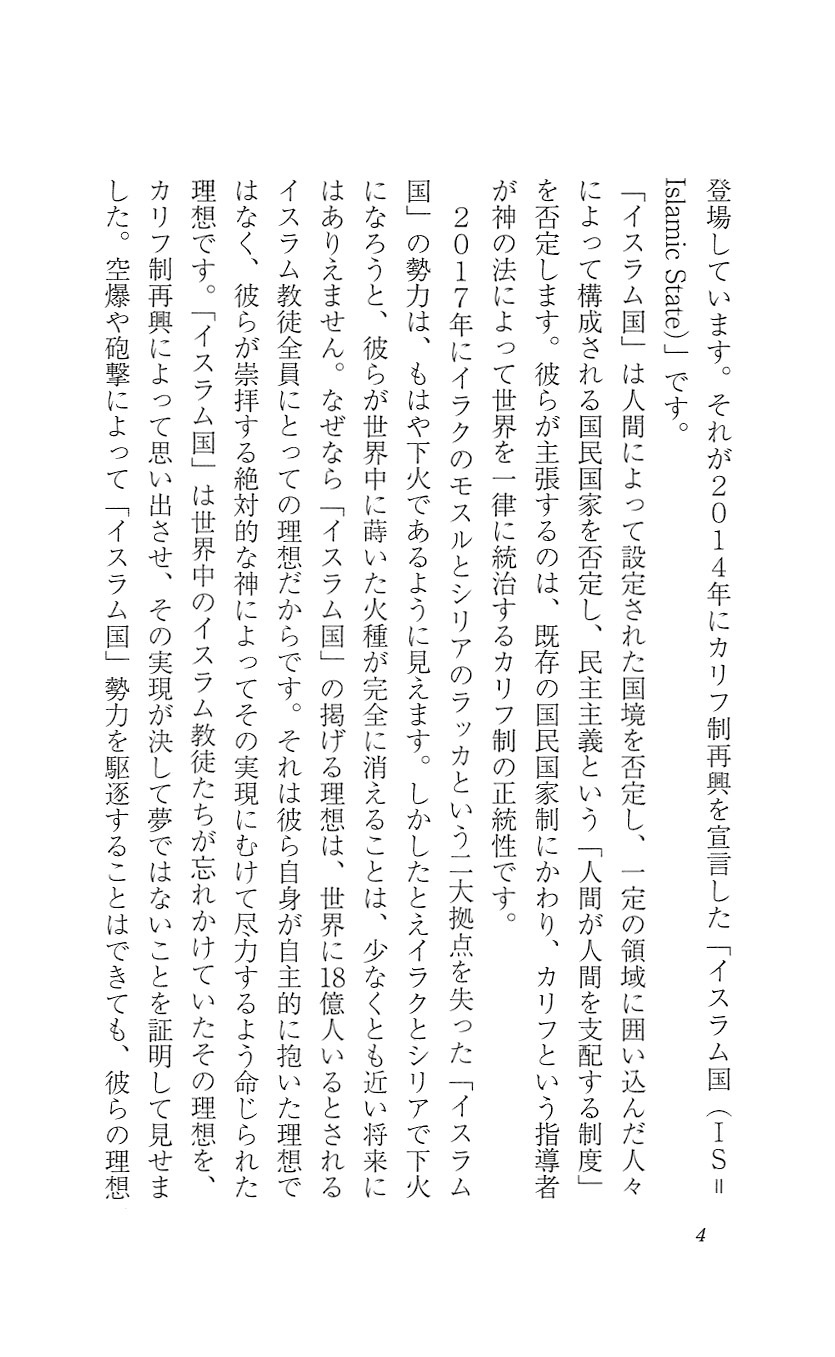 登場しています。それが2014年にカリフ制再興を宣言した「イスラム国（IS＝
Islamic State）」です。
「イスラム国」は人間によって設定された国境を否定し、一定の領域に囲い込んだ人々
によって構成される国民国家を否定し、民主主義という「人間が人間を支配する制度」
を否定します。彼らが主張するのは、既存の国民国家制にかわり、カリフという指導者
が神の法によって世界を一律に統治するカリフ制の正統性です。
2017年にイラクのモスルとシリアのラッカという二大拠点を失った「イスラム
国」の勢力は、もはや下火であるように見えます。しかしたとえイラクとシリアで下火
になろうと、彼らが世界中に蒔いた火種が完全に消えることは、少なくとも近い将来に
はありえません。なぜなら「イスラム国」の掲げる理想は、世界に18億人いるとされる
イスラム教徒全員にとっての理想だからです。それは彼ら自身が自主的に抱いた理想で
はなく、彼らが崇拝する絶対的な神によってその実現にむけて尽力するよう命じられた
理想です。「イスラム国」は世界中のイスラム教徒たちが忘れかけていたその理想を、
カリフ制再興によって思い出させ、その実現が決して夢ではないことを証明して見せま
した。空爆や砲撃によって「イスラム国」勢力を駆逐することはできても、彼らの理想
4